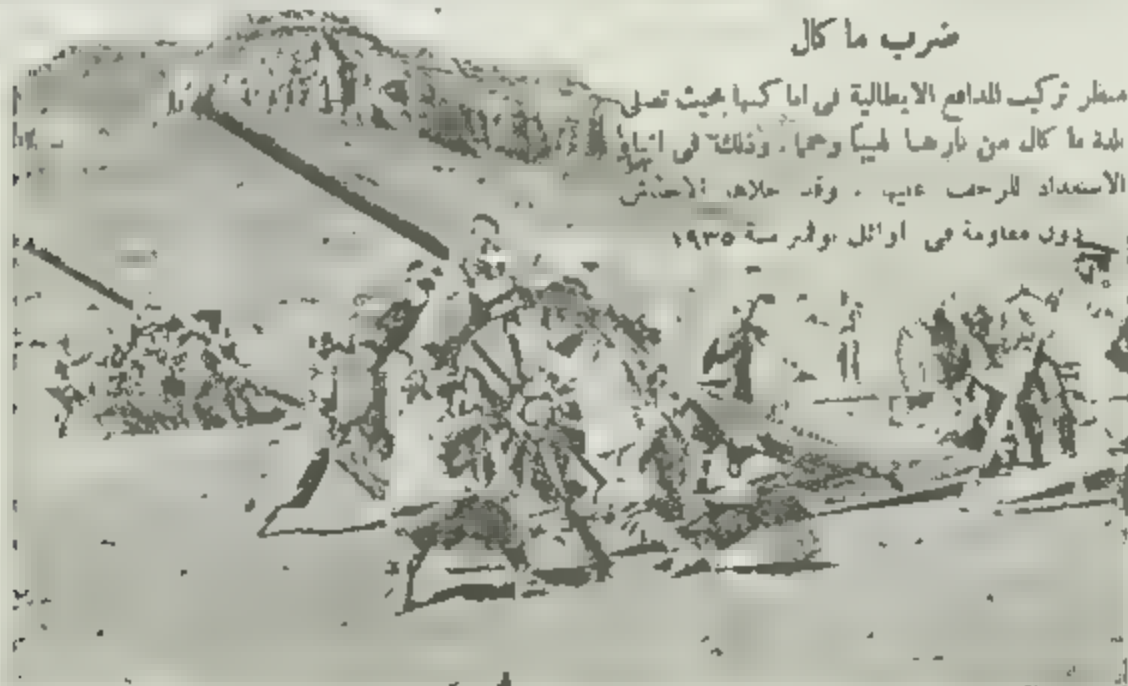 ضرب ما كال
منظر تركيب المدافع الايطالية في اما كنها بحيث تصلى
بلدة ما كال من نارها لهيباً وحمما . وذلك في اثناء
الاستعداد للزحف عليها . وقد خلاها الاحباش
دون مقاومة في اوائل نوفمبر سنة ١٩٣٥